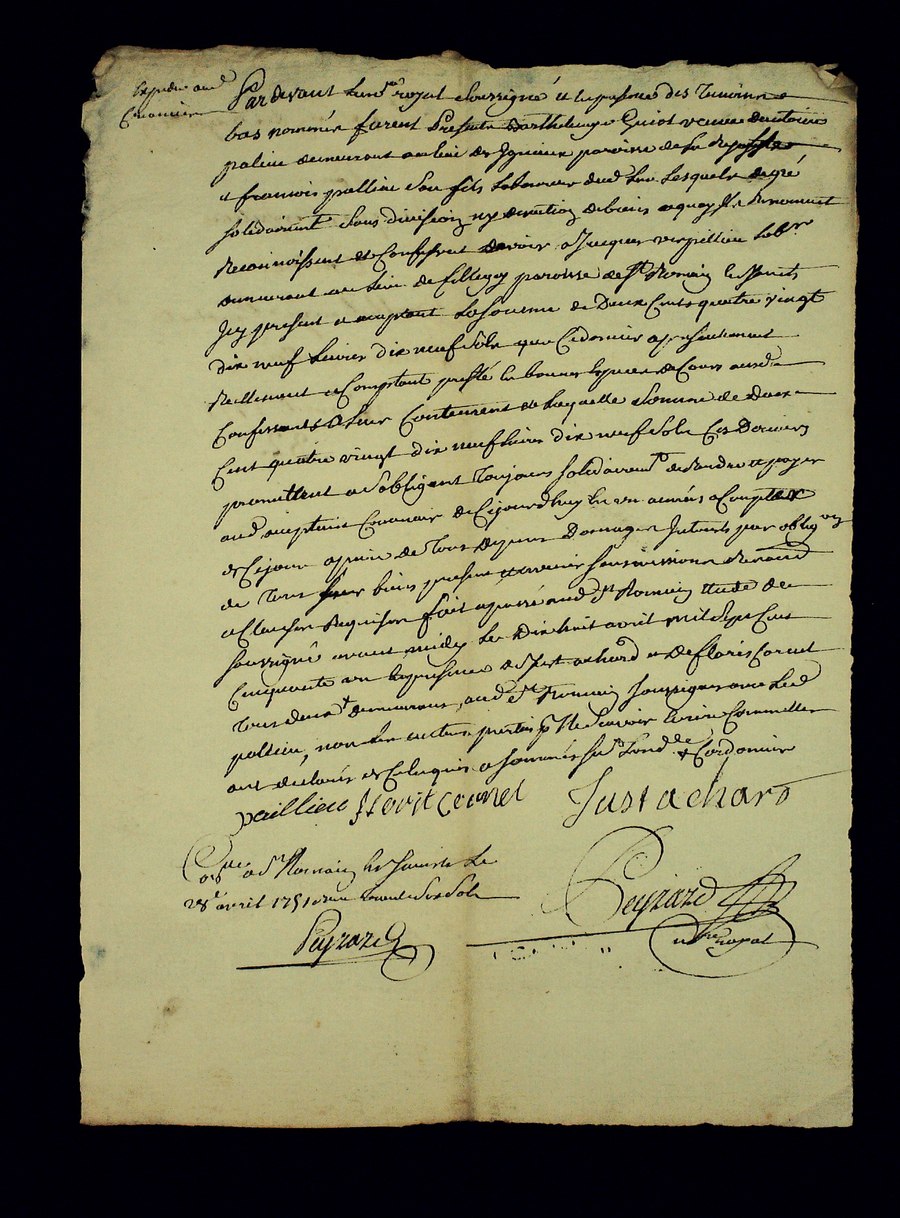 Expedié aud
Creancier
Pardevant le no.re royal soussigné et en presence des temoins
bas nommés furent presents Barthelemye Guiot veuve d'antoine
palieu demeurant au lieu de paroisse de la
& francois pallieu son fils laboureur dud lieu lesquels de gré
solidairement sans division ny discution de biens a quoy ils renoncent
Reconnoissent et Confessent devoir a Jacques verpillieu lab.r
demeurant au lieu de paroisse de S.t Romain en Jarests
Icy present et acceptant la somme de Deux Cents quatre vingt
dix neuf Livres dix neuf sols que Ce dernier a presentement
Reellement et Comptant presté en bonnes especes de Cours ausd.
Confessants a leur Contentement de laquelle somme de deux
Cent quatre vingt dix neuf livres dix neuf sols Ces Derniers
promettent et s'obligent toujours solidairem.t de rendre et payer
aud acceptant Creancier de Cejourdhuy en un année a Compter
de Ce jour a peine de tous depens Dommages Interets par oblig.on
de tous leurs biens presents et avenir soumissions Renon.on
& Clauses Requises fait et passé aud S.t Romain Etude de
soussigné avant midy le Dix huit avril mil sept Cent
Cinquante un en presence de Just achard et de floris Cornet
tous deux demeurans aud S.t Romain soussignés avec led
pallieu, non les autres parties p.r ne scavoir Ecrire Comme elles
ont declarés de Ce Enquis et sommés & Cordonnier
paillieu floris Cornet Just achard
Con.lé a S.t Romain en Jarests Le
28.e avril 1751 sols
Peyrard Peyrard
no.re royal